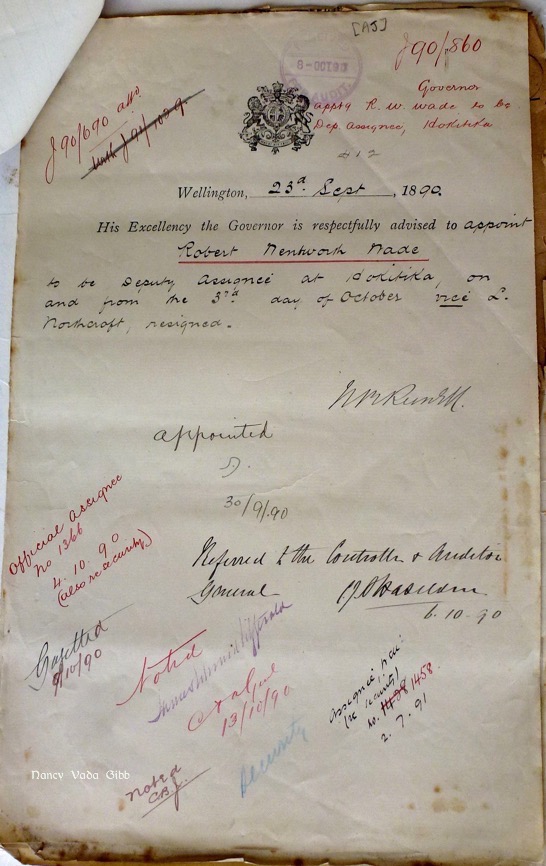 [AJ]
J90/860
8-OCT.90
AUDIT.
J90/690 atto.
with J91/1029.
Governor
apptg R. W. Wade to be
Dep. Assignee, Hokitika
412
Wellington, 23rd Sept, 1890.
His Excellency the Governor is respectfully advised to appoint
Robert Wentworth Wade
to be Deputy Assignee at Hokitika, on
and from the 3rd day of October vice L.
Northcroft, resigned.
Appointed
30/9/90
Official Assignee
No 1366
4.10.90
(also re security)
Referred to the Controller & Auditor
General
6.10.90
Gazetted
9/10/90
Noted
13/10/90
Security
Assignee
(re security)
No. 1458.
2.7.91
Noted
CBJ
Nancy Vada Gibb